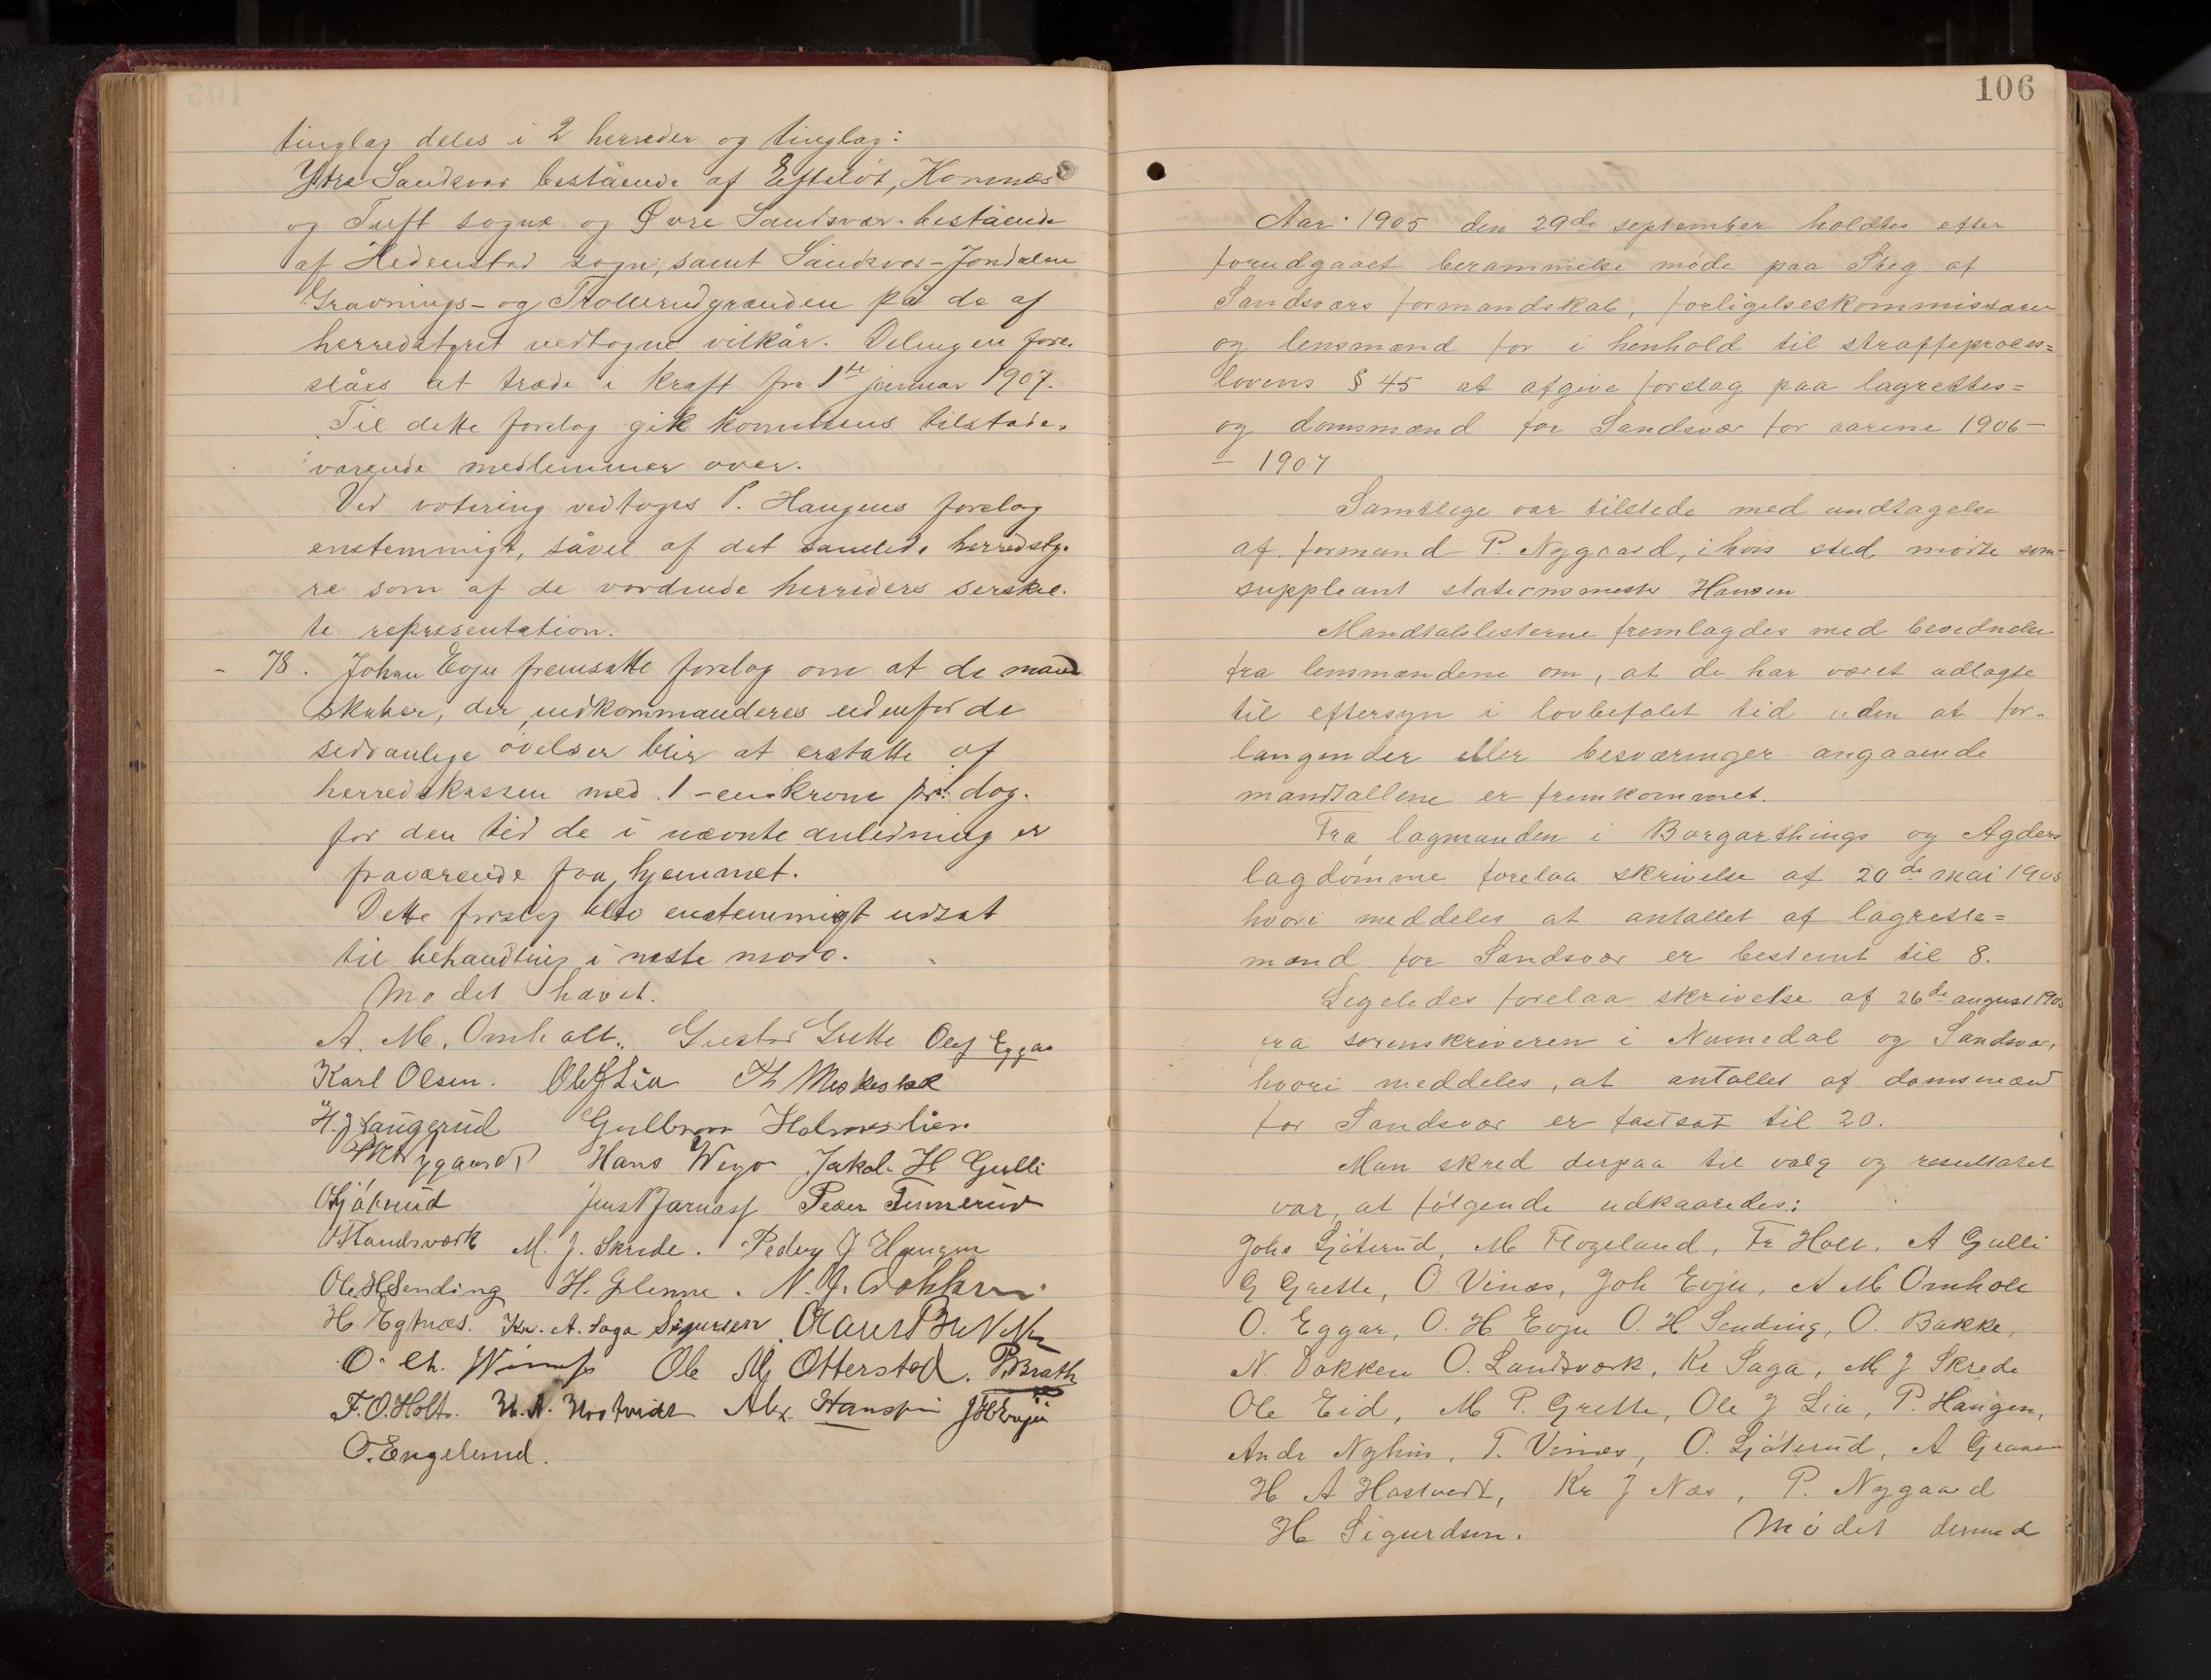 tinglag deles i 2 herreder og tinglag:
Ytre Sandsvær bestående af Efteløt, Komnæs
og Tuft sogne og Øvre Sandsvær bestående
af Hedenstad sogn, samt Sandsvær-Jondalen
Gravnings- og Trollerudgrænden på de af
herredstyret vedtagne vilkår. Delingen fore-
slåes at træde i kraft fra 1ste januar 1907.
Til dette forslag gik komiteens tilstede-
værende medlemmer over.
Ved votering vedtoges P. Haugens forslag
enstemmigt, såvel af det samlede herredsty-
re som af de vordende herreders serskil-
te representation.
- 78. Johan Evju fremsatte forslag om at de mand
skaber, der udkommanderes udenfor de
sedvanlige øvelser blir at erstatte af
herredskassen med 1 - en krone pr. dag.
for den tid de i nævnte anledning er
fraværende fra hjemmet.
Dette forslag blev enstemmigt udsat
til behandling i næste møde.
Mødet hævet.
A. M. Omholt. Gustav Grette Olaf Eggar
Karl Olsen. Ole J Lia Th
H. J Haugerud Gulbran Holmeslien
Nygaard Hans Jakob H Gulli
Ljøterud Peder
O Landsværk M. J. Skrede. Peder J Haugen
Ole H Sending H. Glenne. N. J. Dokken
H Egtnæs. Kr. A. Saga Sigursen
O. Ch. Ole M Otterstad. P. Bråth
F. O. Holt. H. A. Hostvedt Alex. Hansen J H Evju
O. Engelund.
106
Aar 1905 den 29de september holdtes efter
forudgaaet berammelse møde paa Steg af
Sandsværs formandskab, forligelseskommissærer
og lensmænd for i henhold til straffeproces=
lovens § 45 at afgive forslag paa lagrettes=
og domsmænd for Sandsvær for aarene 1906-
- 1907
Samtlige var tilstede med undtagelse
af formand P. Nygaard, i hvis sted mødte som
suppleant stationsmester Hansen
Mandtalslisterne fremlagdes med bevidnelse
fra lensmændene om, at de har været udlagte
til eftersyn i lovbefalet tid uden at for-
langender eller besværinger angaaende
mandtallene er fremkommet.
Fra lagmanden i Borgarthings og Agders
lagdømme forelaa skrivelse af 20de mai 1905
hvori meddeles at antallet af lagrette=
mænd for Sandsvær er bestemt til 8.
Ligeledes forelaa skrivelse af 26de august 1905
fra sorenskriveren i Numedal og Sandsvær,
hvori meddeles, at antallet af domsmænd
for Sandsvær er fastsat til 20.
Man skred derpaa til valg og resultatet
var, at følgende udkaaredes:
Johs Ljøterud, M Flogeland, Fr Holt, A Gulli
G Grette, O. Vinæs, Joh Evju, A M Omholt
O. Eggar, O. H Evju O. H Sending, O. Bakke,
N. Dokken O. Landsværk, Kr Saga, M J Skrede
Ole Eid, M P. Grette, Ole J Lia, P. Haugen,
Andr Nyhus, T. Vinæs, O. Ljøterud, A Graven
H A Hostvedt, Kr J Næs, P. Nygaard
H Sigurdsen. Mødet dermed